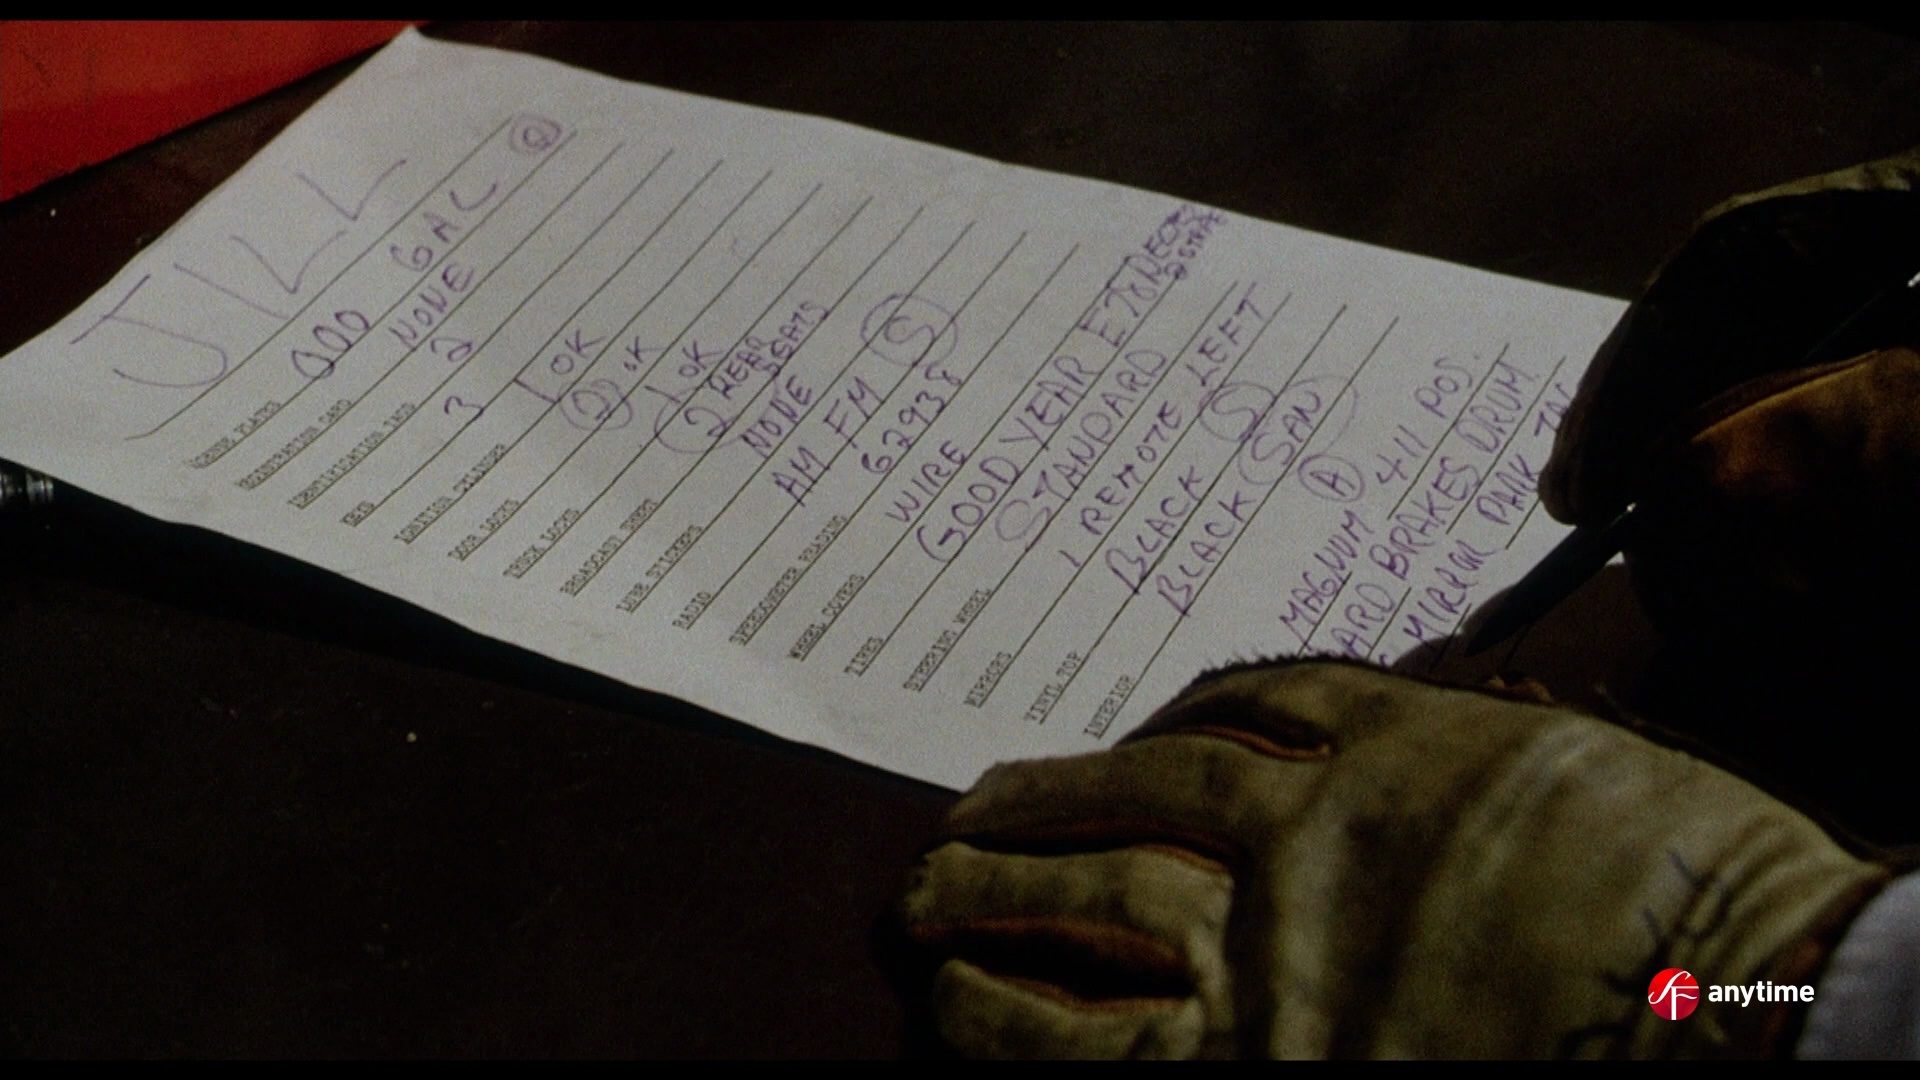 JILL
LICENSE PLATES 000 GAL
REGISTRATION CARD NONE
IDENTIFICATION TAGS 2
KEYS 3
IGNITION CYLINDER 1 OK
DOOR LOCKS 2 OK
TRUCK LOCKS 1 OK
BROADCAST SHEET 2 REAR SEATS
LUBE STICKERS NONE
RADIO AM FM S
SPEEDOMETER READING 62938
WHEEL COVERS WIRE
TIRES GOOD YEAR
STEERING WHEEL STANDARD
MIRRORS 1 REMOTE LEFT
VINYL TOP BLACK S
INTERIOR BLACK SAN
A
MAGNUM 411 POS.
ARD BRAKES DRUM
MIRROR PARK
SF anytime